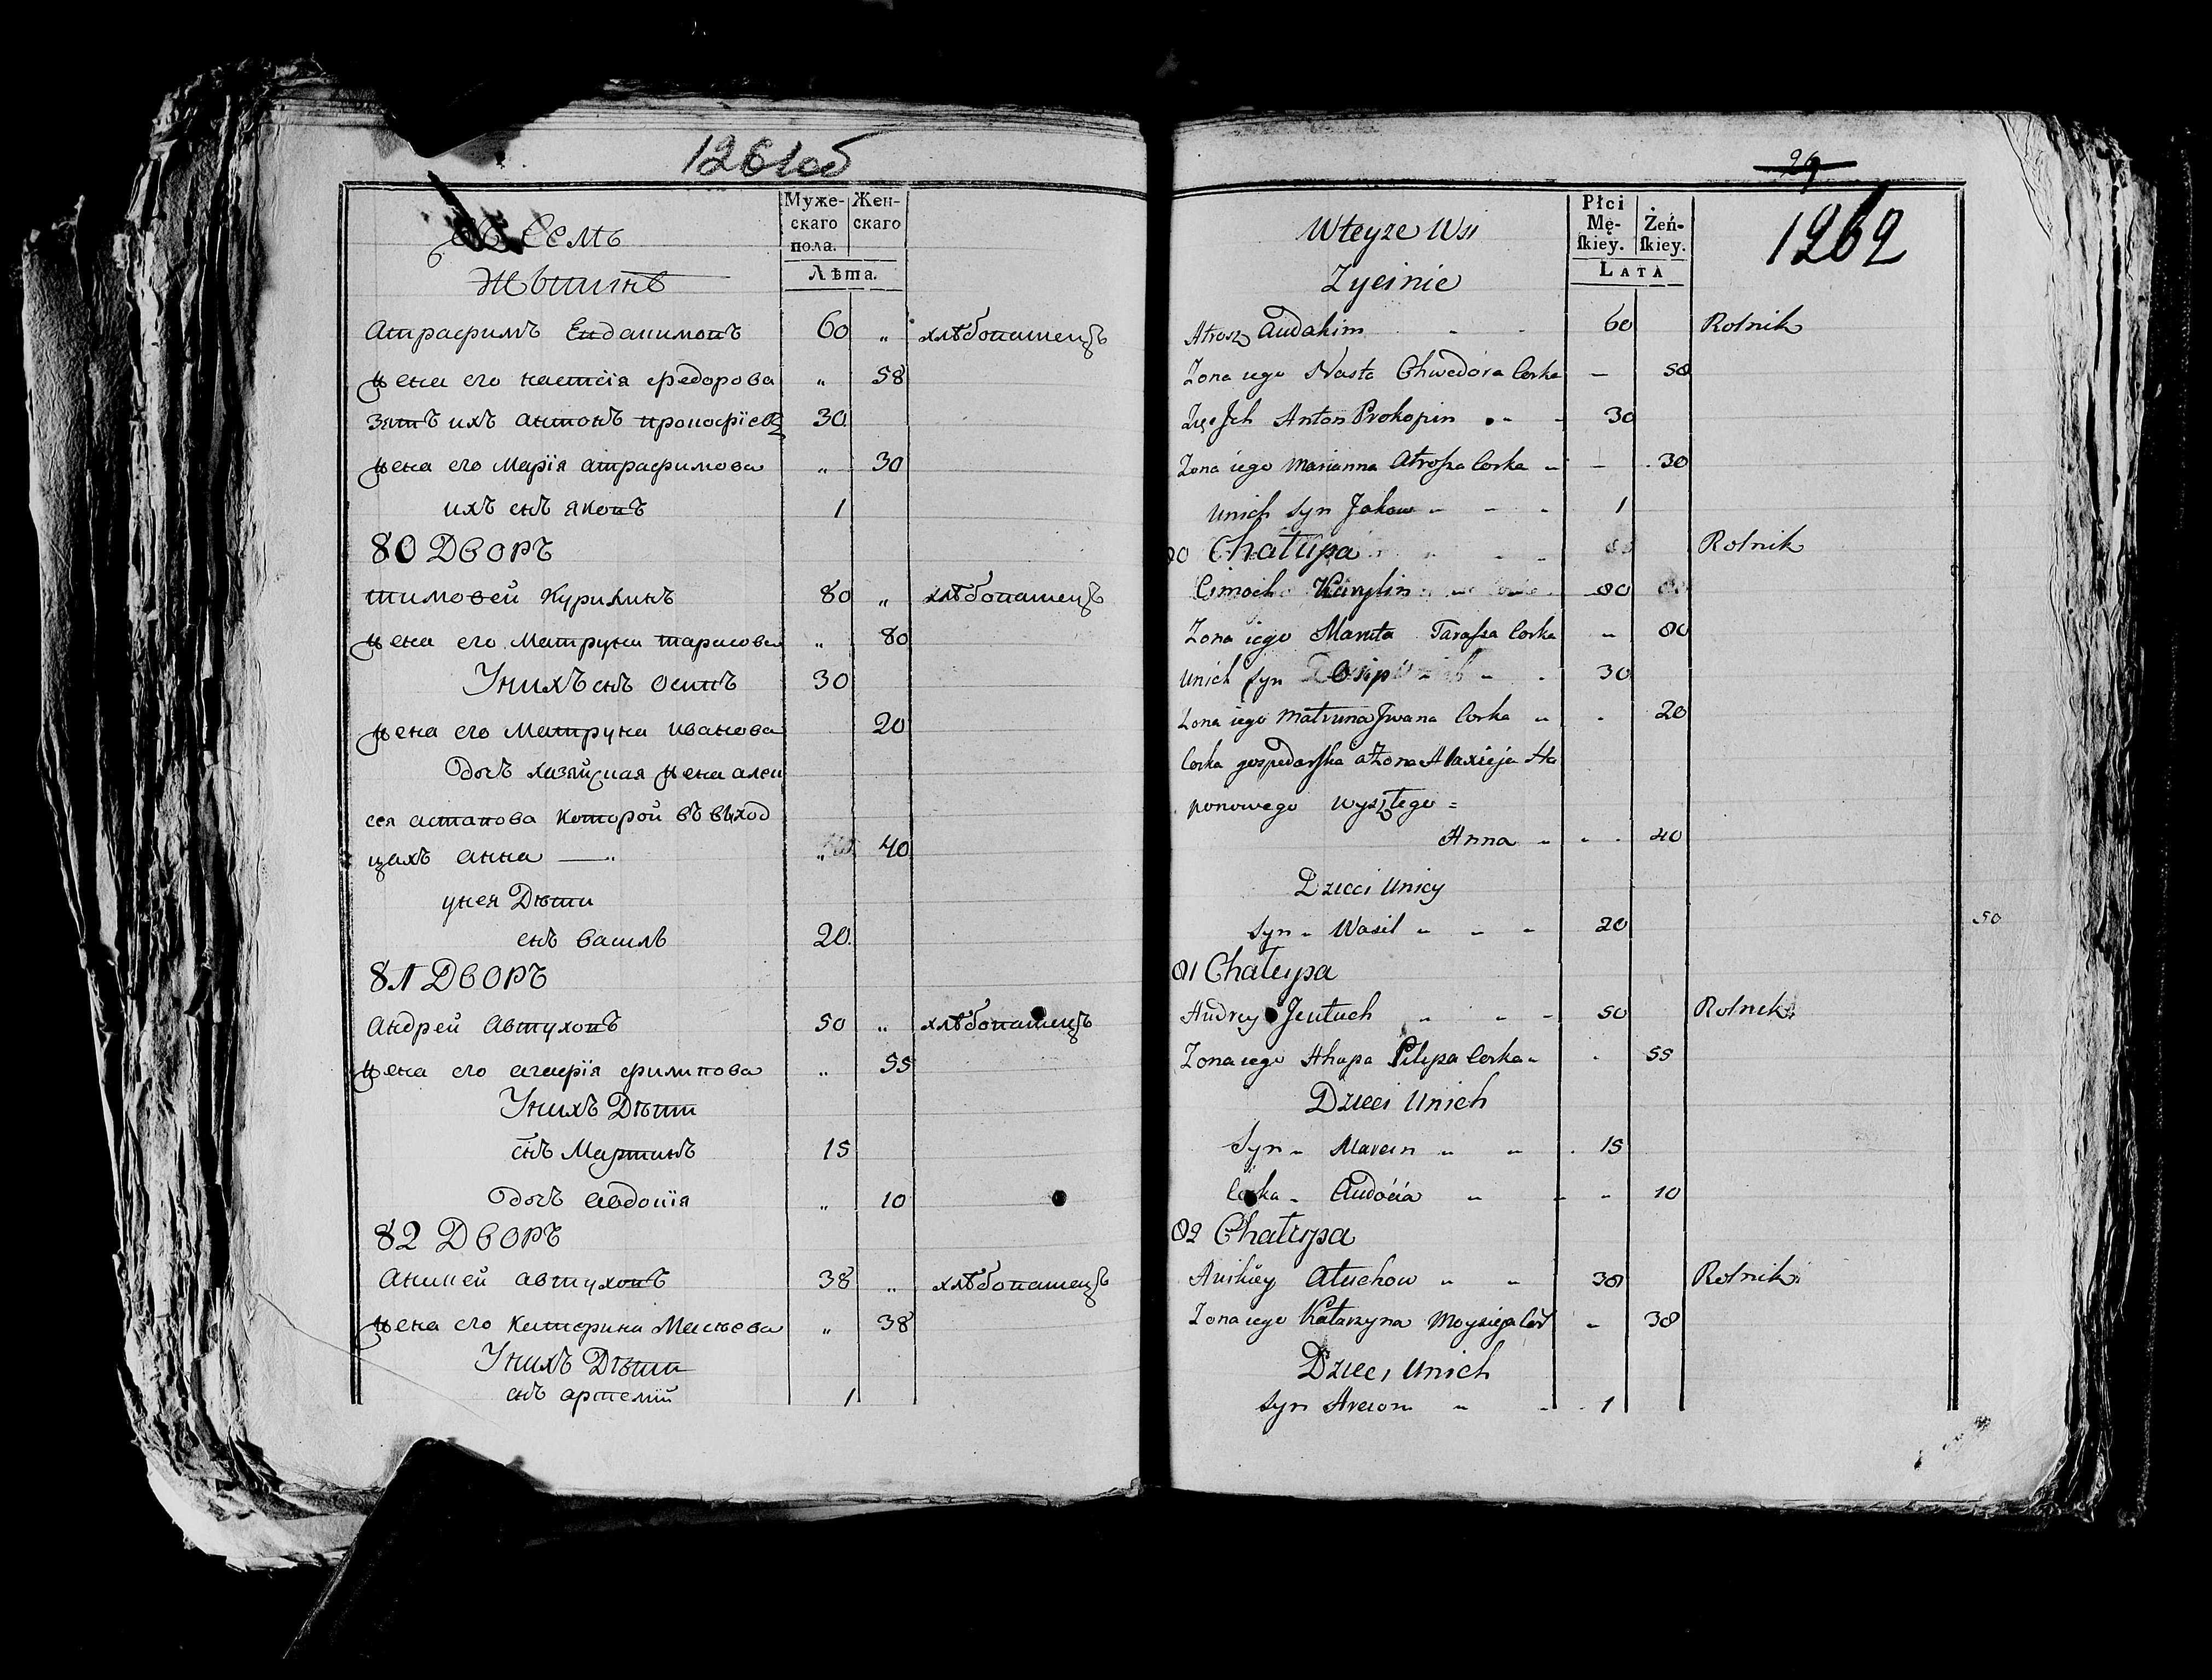 1261об
Муже-
скаго
пола.
Жен-
скаго
Лѣта.
Семъ
Атрафимъ Евдакимовъ 60 „ хлѣбопашецъ
жена его настсія федорова „ 58
зятъ ихъ антонъ прокофіевъ 30
жена его марія атрафимова „ 30
ихъ снъ яковъ 1
80 Дворъ
тимофей Курилинъ 80 „ хлѣбопашецъ
жена его матруна тарасова „ 80
Унихъ снъ осипъ 30
жена его матруна иванова 20
дочъ хазяйская жена алек
сея астапова которой въ выход
цахъ анна — „ 40
унея Дѣти
снъ василь 20
81 Дворъ
Андрей Автуховъ 50 „ хлѣбопашецъ
жена его агафія филипова „ 55
Унихъ Дѣти
снъ Мартинъ 15
дочъ Авдопія „ 10
82 Дворъ
Аникей автуховъ 38 „ хлѣбопашецъ
жена его катерина Мосѣева „ 38
Унихъ Дѣти
снъ артемій 1
29
1262
Płci
Mę-
ſkiey.
Żeń-
ſkiey.
LATA
Wteyze Wsi
Zycinie
Atrosz Audakim - - 60 Rolnik
Zona iego Nasta Chwedora Corka — 58
Zięć Jch Anton Prokopin - - 30
Zona iego Marianna Atroſza Corka - - 30
Unich Syn Jakow - - - 1
80 Chałupa Rolnik
Cimoch Kurylin 80
Zona iego Maruta Taraſsa Corka - 80
Unich Syn Osip - - 30
Zona iego Matruna Jwana Corka - - 20
Corka gospodarſka a Zona Alaxieja Sta
ponowego wyszłego =
Anna - - - 40
Dzieci Unicy
Syn - Wasil - - - 20
50
81 Chałupa
Andrey Jeutuch - - - 50 Rolnik
Zona iego Ahapa Pilipa Corka - - 55
Dzieci Unich
Syn - Marcin - - - 15
Corka - Audocia - - - 10
82 Chałupa
Anikiey Atuchow - - 38 Rolnik
Zona iego Katarzyna Moysieja Cor - 38
Dzieci Unich
Syn Arciom - - - 1